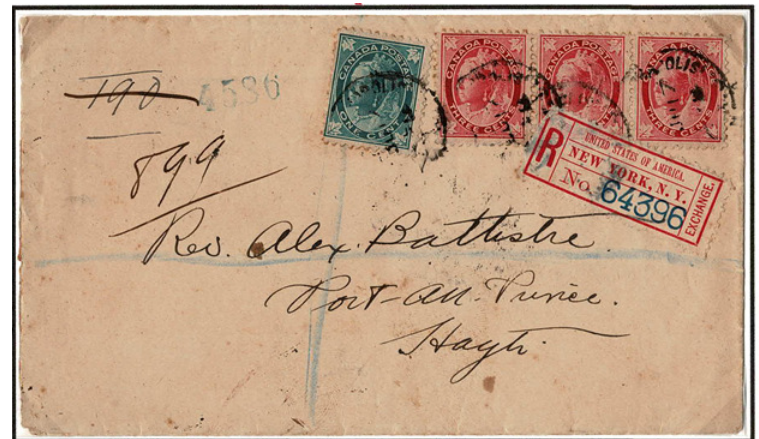 190
4586
899
CANADA POSTAGE
ONE CENT
CANADA POSTAGE
THREE CENTS
CANADA POSTAGE
THREE CENTS
CANADA POSTAGE
THREE CENTS
R
UNITED STATES OF AMERICA.
NEW YORK, N. Y.
No. 64396
EXCHANGE.
Rev. Alex. Battistre
Port-au-Prince.
Hayti